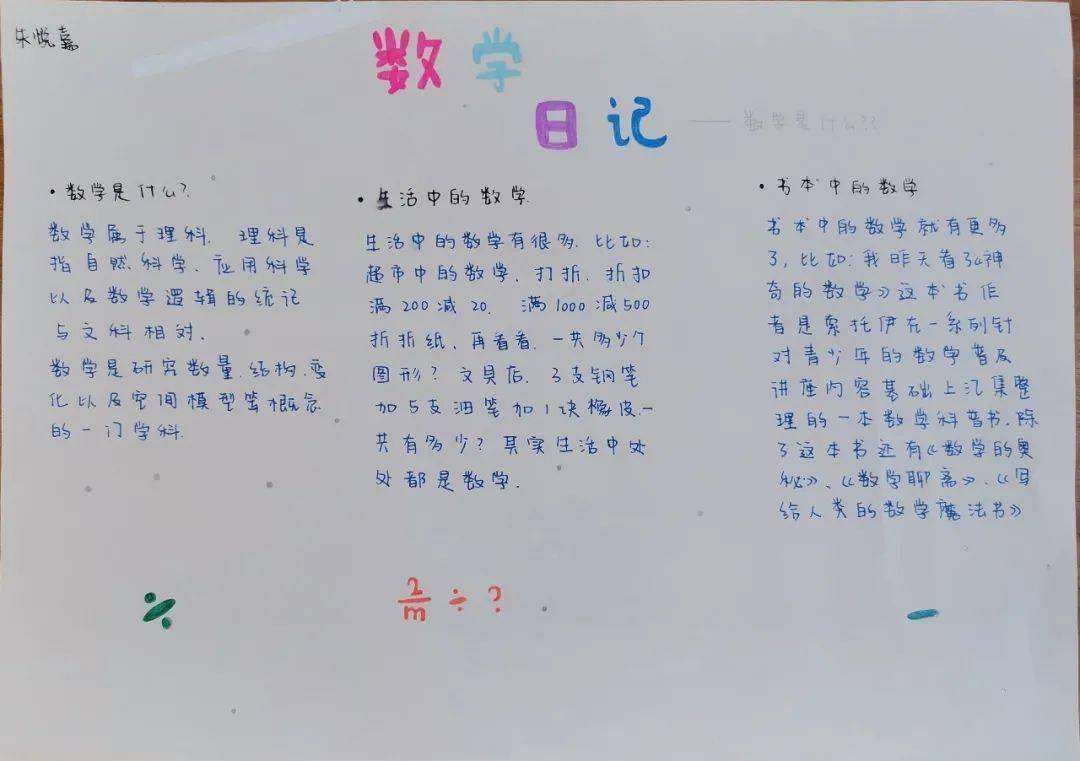 朱悦嘉
数学
日记
——数学是什么??
·数学是什么?
数学属于理科. 理科是
指自然科学、应用科学
以及数学逻辑的统记
与文科相对.
数学是研究数量、结构、变
化以及空间模型等概念
的一门学科.
·生活中的数学.
生活中的数学有很多.比如:
超市中的数学,打折、折扣
满200减20. 满1000减500
折折纸、再看看、一共多少个
图形?文具店、3支钢笔
加5支油笔加1块橡皮、一
共有多少?其实生活中处
处都是数学.
·书本中的数学
书本中的数学就有更多
了,比如:我昨天看了《神
奇的数学》这本书作
者是索托伊在一系列针
对青少年的数学普及
讲座内容基础上汇集整
理的一本数学科普书.除
了这本书还有《数学的奥
秘》、《数学聊斋》、《写
给人类的数学魔法书》
÷
2/m ÷ ?
−